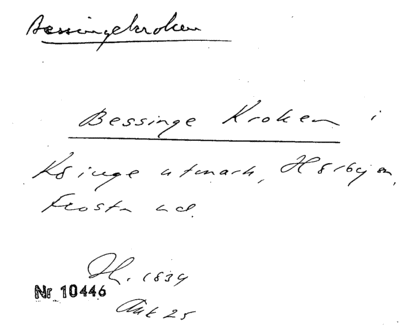 Bessingekroken
Bessinge Kroken i
Köinge utmark, Hörby sn,
Frosta hd.
H. 1834
Nr 10446
Akt 25